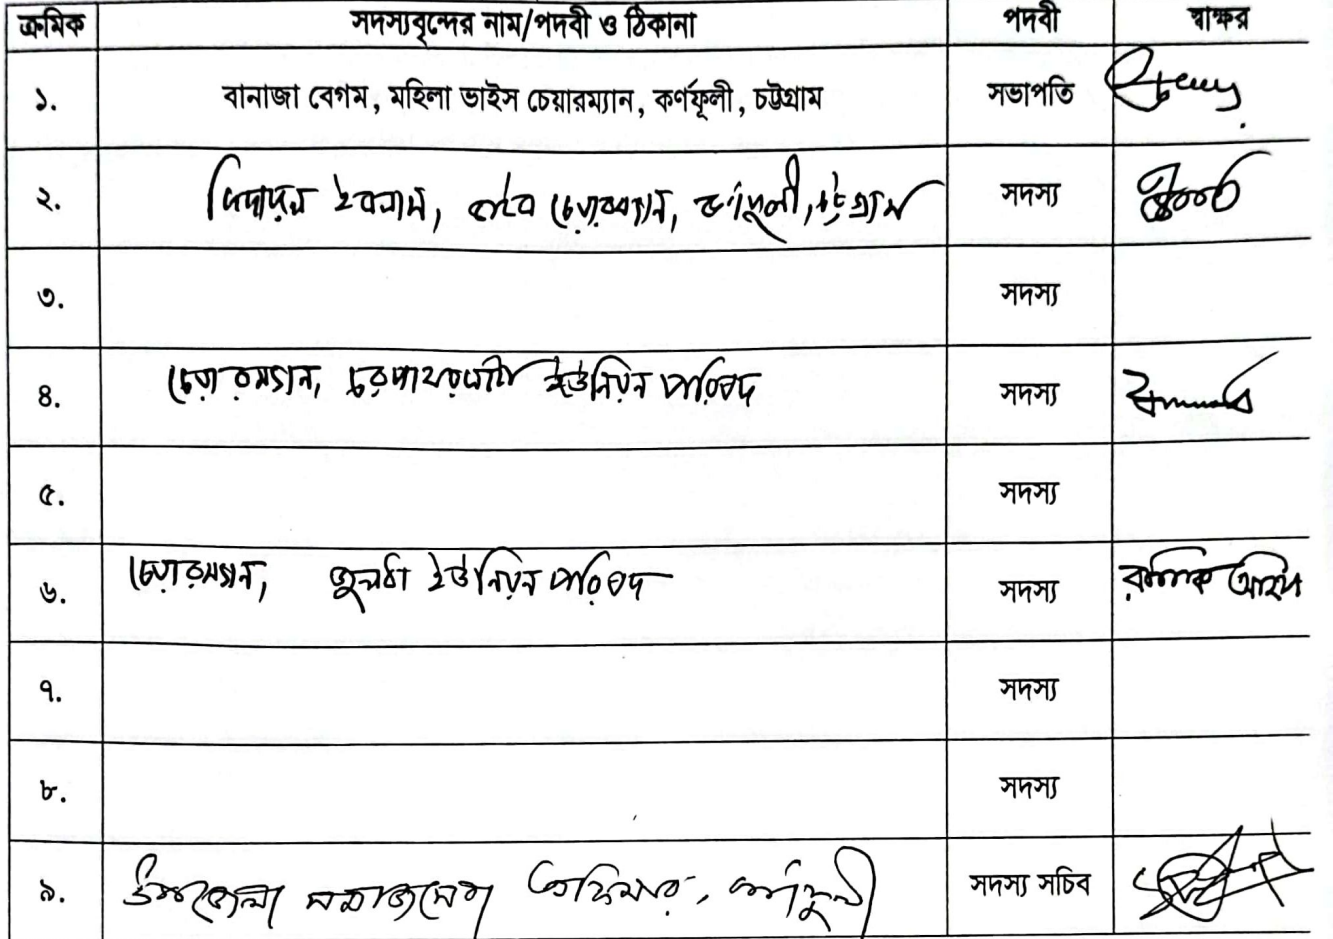 ক্রমিক সদস্যবৃন্দের নাম/পদবী ও ঠিকানা পদবী স্বাক্ষর
১. বানাজা বেগম, মহিলা ভাইস চেয়ারম্যান, কর্ণফূলী, চট্টগ্রাম সভাপতি
২. ইসলাম, চেয়ারম্যান, কর্ণফুলী, চট্টগ্রাম সদস্য
৩. সদস্য
৪. চেয়ারম্যান, চরপাথরঘাটা ইউনিয়ন পরিষদ সদস্য
৫. সদস্য
৬. চেয়ারম্যান, জুলধা ইউনিয়ন পরিষদ সদস্য রফিক আহমদ
৭. সদস্য
৮. সদস্য
৯. উপজেলা সমাজসেবা অফিসার, কর্ণফুলী সদস্য সচিব